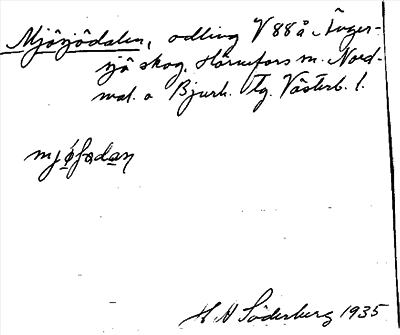 Mjösjödalen, odling V 88 å Ånger-
sjö skog, Hörnefors m. Nord-
mal. o Bjurh. tg. Västerb. l.
mjö̱ʃo̱da̱n
H A Söderberg 1935